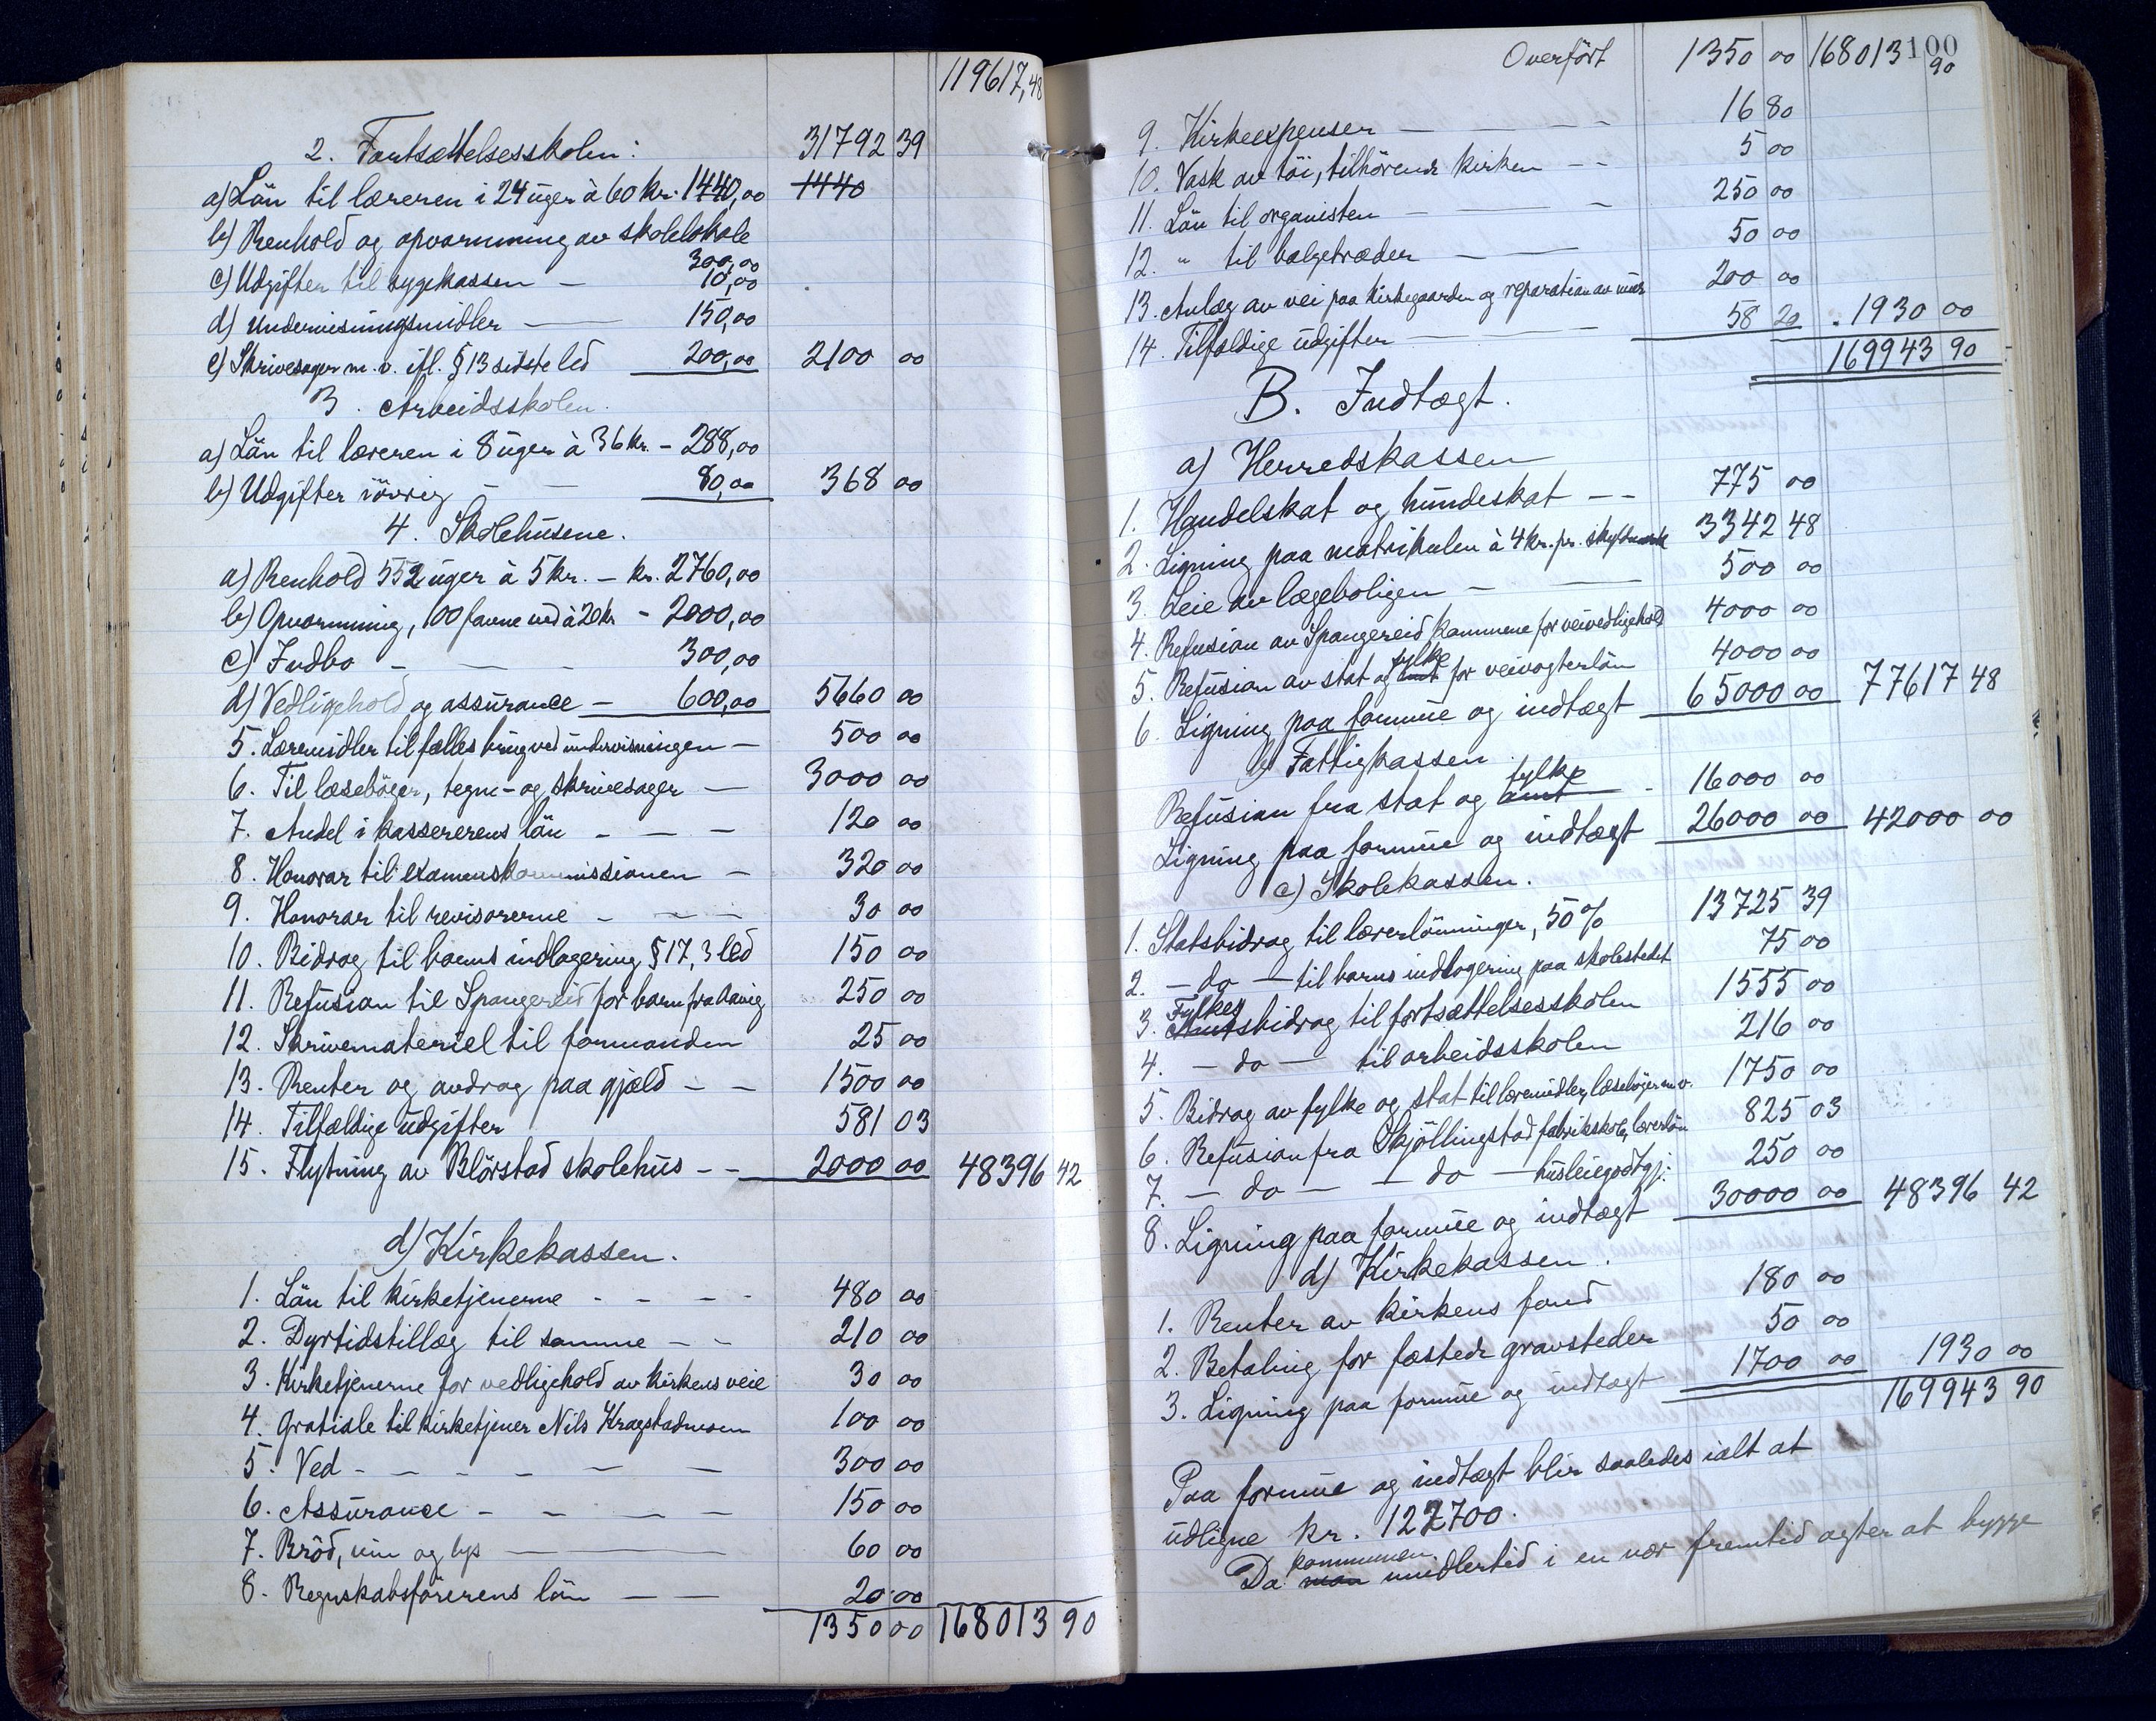 119617,48
2. Fortsættelsesskolen: 31792 39
a) Lön til læreren i 24 uger à 60 kr. 1440,00 1440
b) Renhold og opvarmning av skolelokale
300,00
c) Udgifter til sygekassen — 10,00
d) Undervisningsmidler — 150,00
e) Skrivesager m. v. ifl. § 13 sidste led 200,00 2100 00
3. Arbeidsskolen.
a) Lön til læreren i 8 uger à 36 kr. – 288,00
b) Udgifter iövrig – – 80,00 368 00
4. Skolehusene.
a) Renhold 552 uger à 5 kr. – kr. 2760,00
b) Opvarmning, 100 favne ved à 20 kr – 2000,00
c) Indbo – — – 300,00
d) Vedligehold og assurance – 600,00 5660 00
5. Læremidler til fælles brug ved undervisningen – 500 00
6. Til læsebøger, tegne- og skrivesager — 3000 00
7. Andel i kassererens lön – — – 120 00
8. Honorar til examenskommissionen – 320 00
9. Honorar til revisorerne – — – 30 00
10. Bidrag til barns indlogering § 17, 3 led 150 00
11. Refusion til Spangereid for barn fra Aavig 250 00
12. Skrivemateriel til formanden 25 00
13. Renter og avdrag paa gjæld – – 1500 00
14. Tilfældige udgifter 581 03
15. Flytning av Blörstad skolehus – – 2000 00 48396 42
d) Kirkekassen.
1. Lön til kirketjenerne – – – – 480 00
2. Dyrtidstillæg til samme – – 210 00
3. Kirketjenerne for vedligehold av kirkens veie 30 00
4. Gratiale til kirketjener Nils Kragstadmoen 100 00
5. Ved – – – – — — 300 00
6. Assurance – – — – 150 00
7. Bröd, vin og lys — — 60 00
8. Regnskabsförerens lön — — 20 00
1350 00 168013 90
100
Overfört 1350 00 168013 90
9. Kirkeexpenser — — — – 16 80
10. Vask av töi, tilhörende kirken – – 5 00
11. Lön til organisten – — – 250 00
12. " til bælgetræder — — 50 00
13. Anlæg av vei paa kirkegaarden og reparation av mur 200 00
14. Tilfældige udgifter — — 58 20 1930 00
169943 90
B. Indtægt.
a) Herredskassen
1. Handelskat og hundeskat – – 775 00
2. Ligning paa matrikulen à 4 kr. pr. skyldmark 3342 48
3. Leie av lægeboligen – — 500 00
4. Refusion av Spangereid kommune for veivedligehold 4000 00
5. Refusion av stat og amt fylke for veivogterlön 4000 00
6. Ligning paa formue og indtægt 65000 00 77617 48
b) Fattigkassen
Refusion fra stat og amt fylke – 16000 00
Ligning paa formue og indtægt 26000 00 42000 00
c) Skolekassen.
1. Statsbidrag til lærerlönninger, 50% 13725 39
2. – do – til barns indlogering paa skolestedet 75 00
3. Amts Fylkesbidrag til fortsættelsesskolen 1555 00
4. – do – til arbeidsskolen 216 00
5. Bidrag av fylke og stat til læremidler, læsebøger m. v. 1750 00
6. Refusion fra Skjöllingstad fabrikskole, lærerlön 825 03
7. – do – – do – husleiegodtgj: 250 00
8. Ligning paa formue og indtægt 30000 00 48396 42
d) Kirkekassen.
1. Renter av kirkens fond 180 00
2. Betaling for fæstede gravsteder 50 00
3. Ligning paa formue og indtægt 1700 00 1930 00
169943 90
Paa formue og indtægt blir saaledes ialt at
udligne kr. 122700.
Da man kommunen imidlertid i en nær fremtid agter at bygge